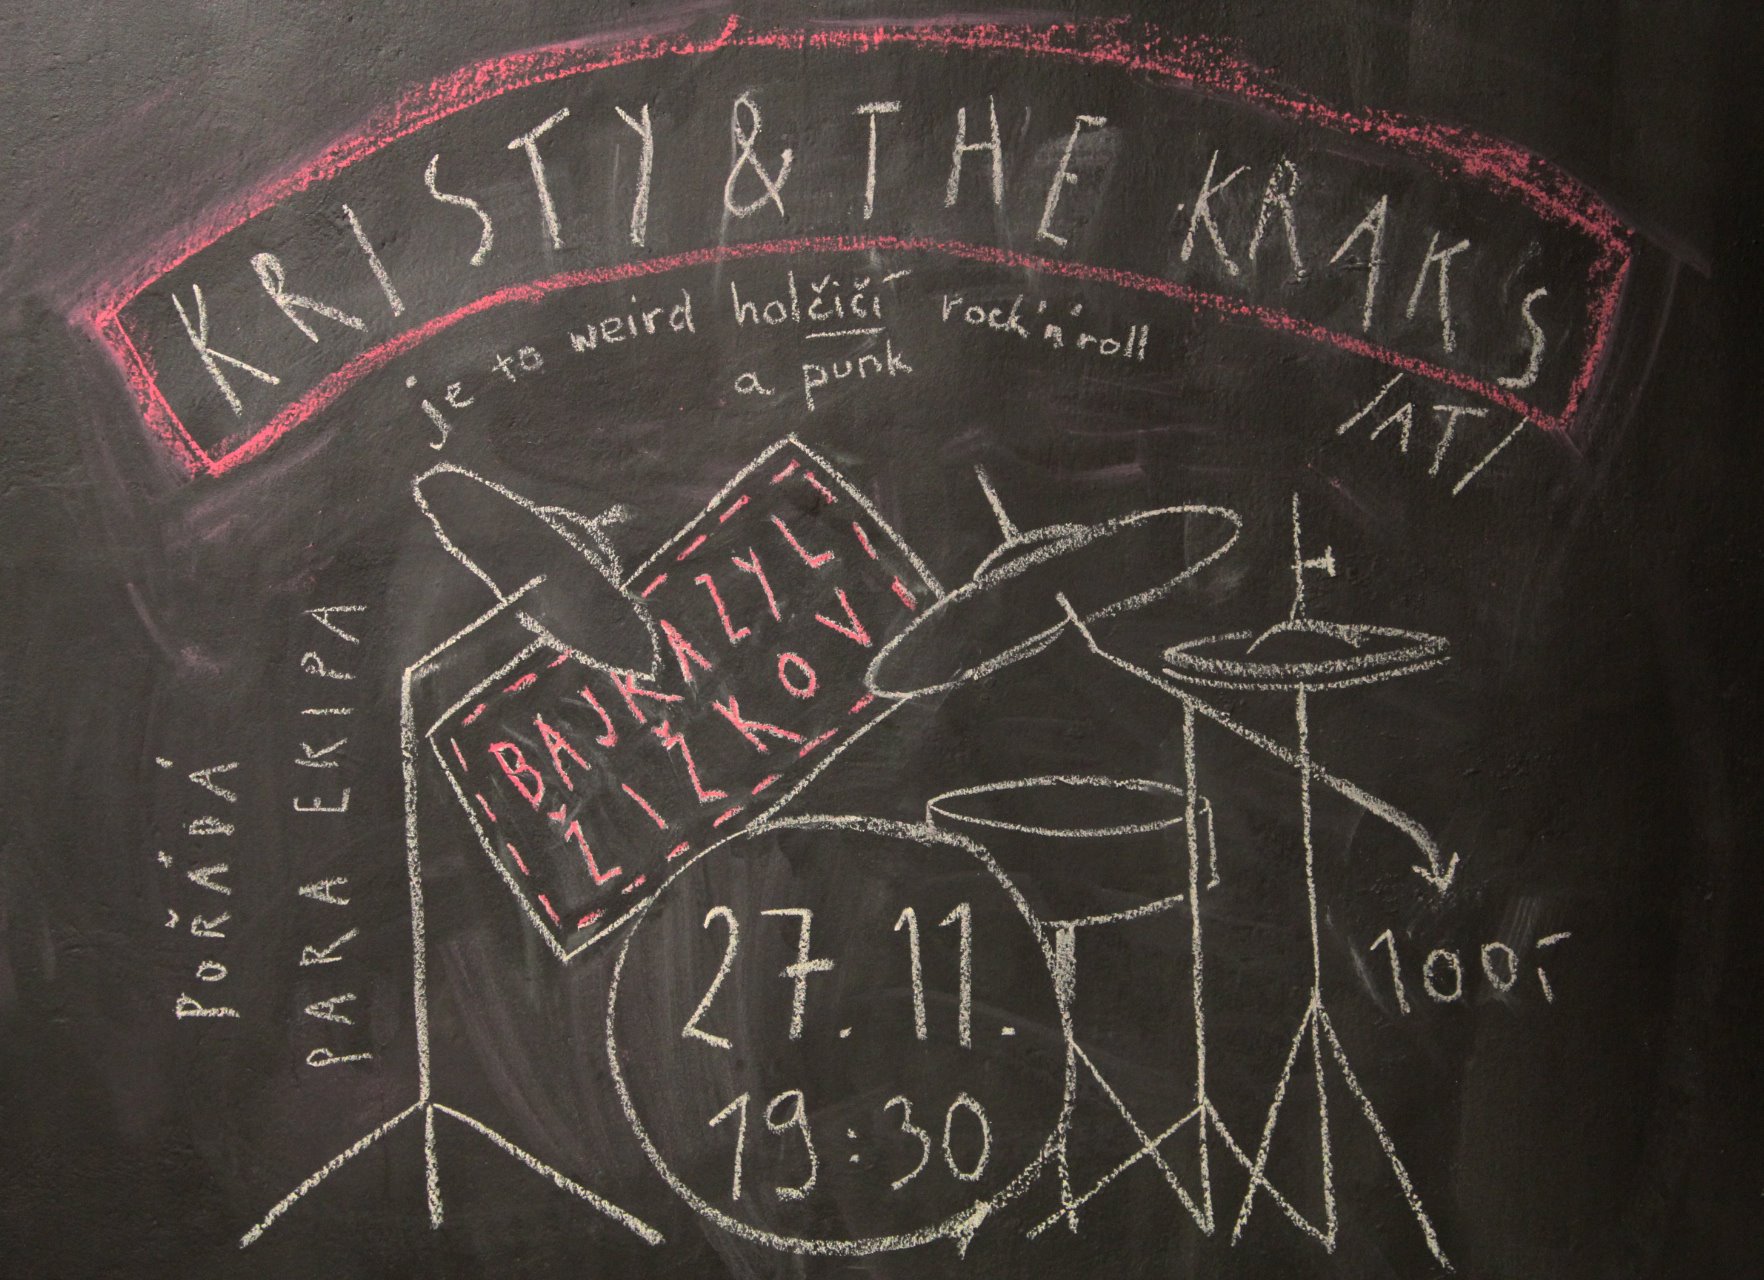 KRISTY & THE KRAKS
/AT/
je to weird holčičí rock'n'roll
a punk
BAJKAZYL
ŽIŽKOV
POŘÁDÁ
PARA EKIPA
27.11.
19:30
100,-